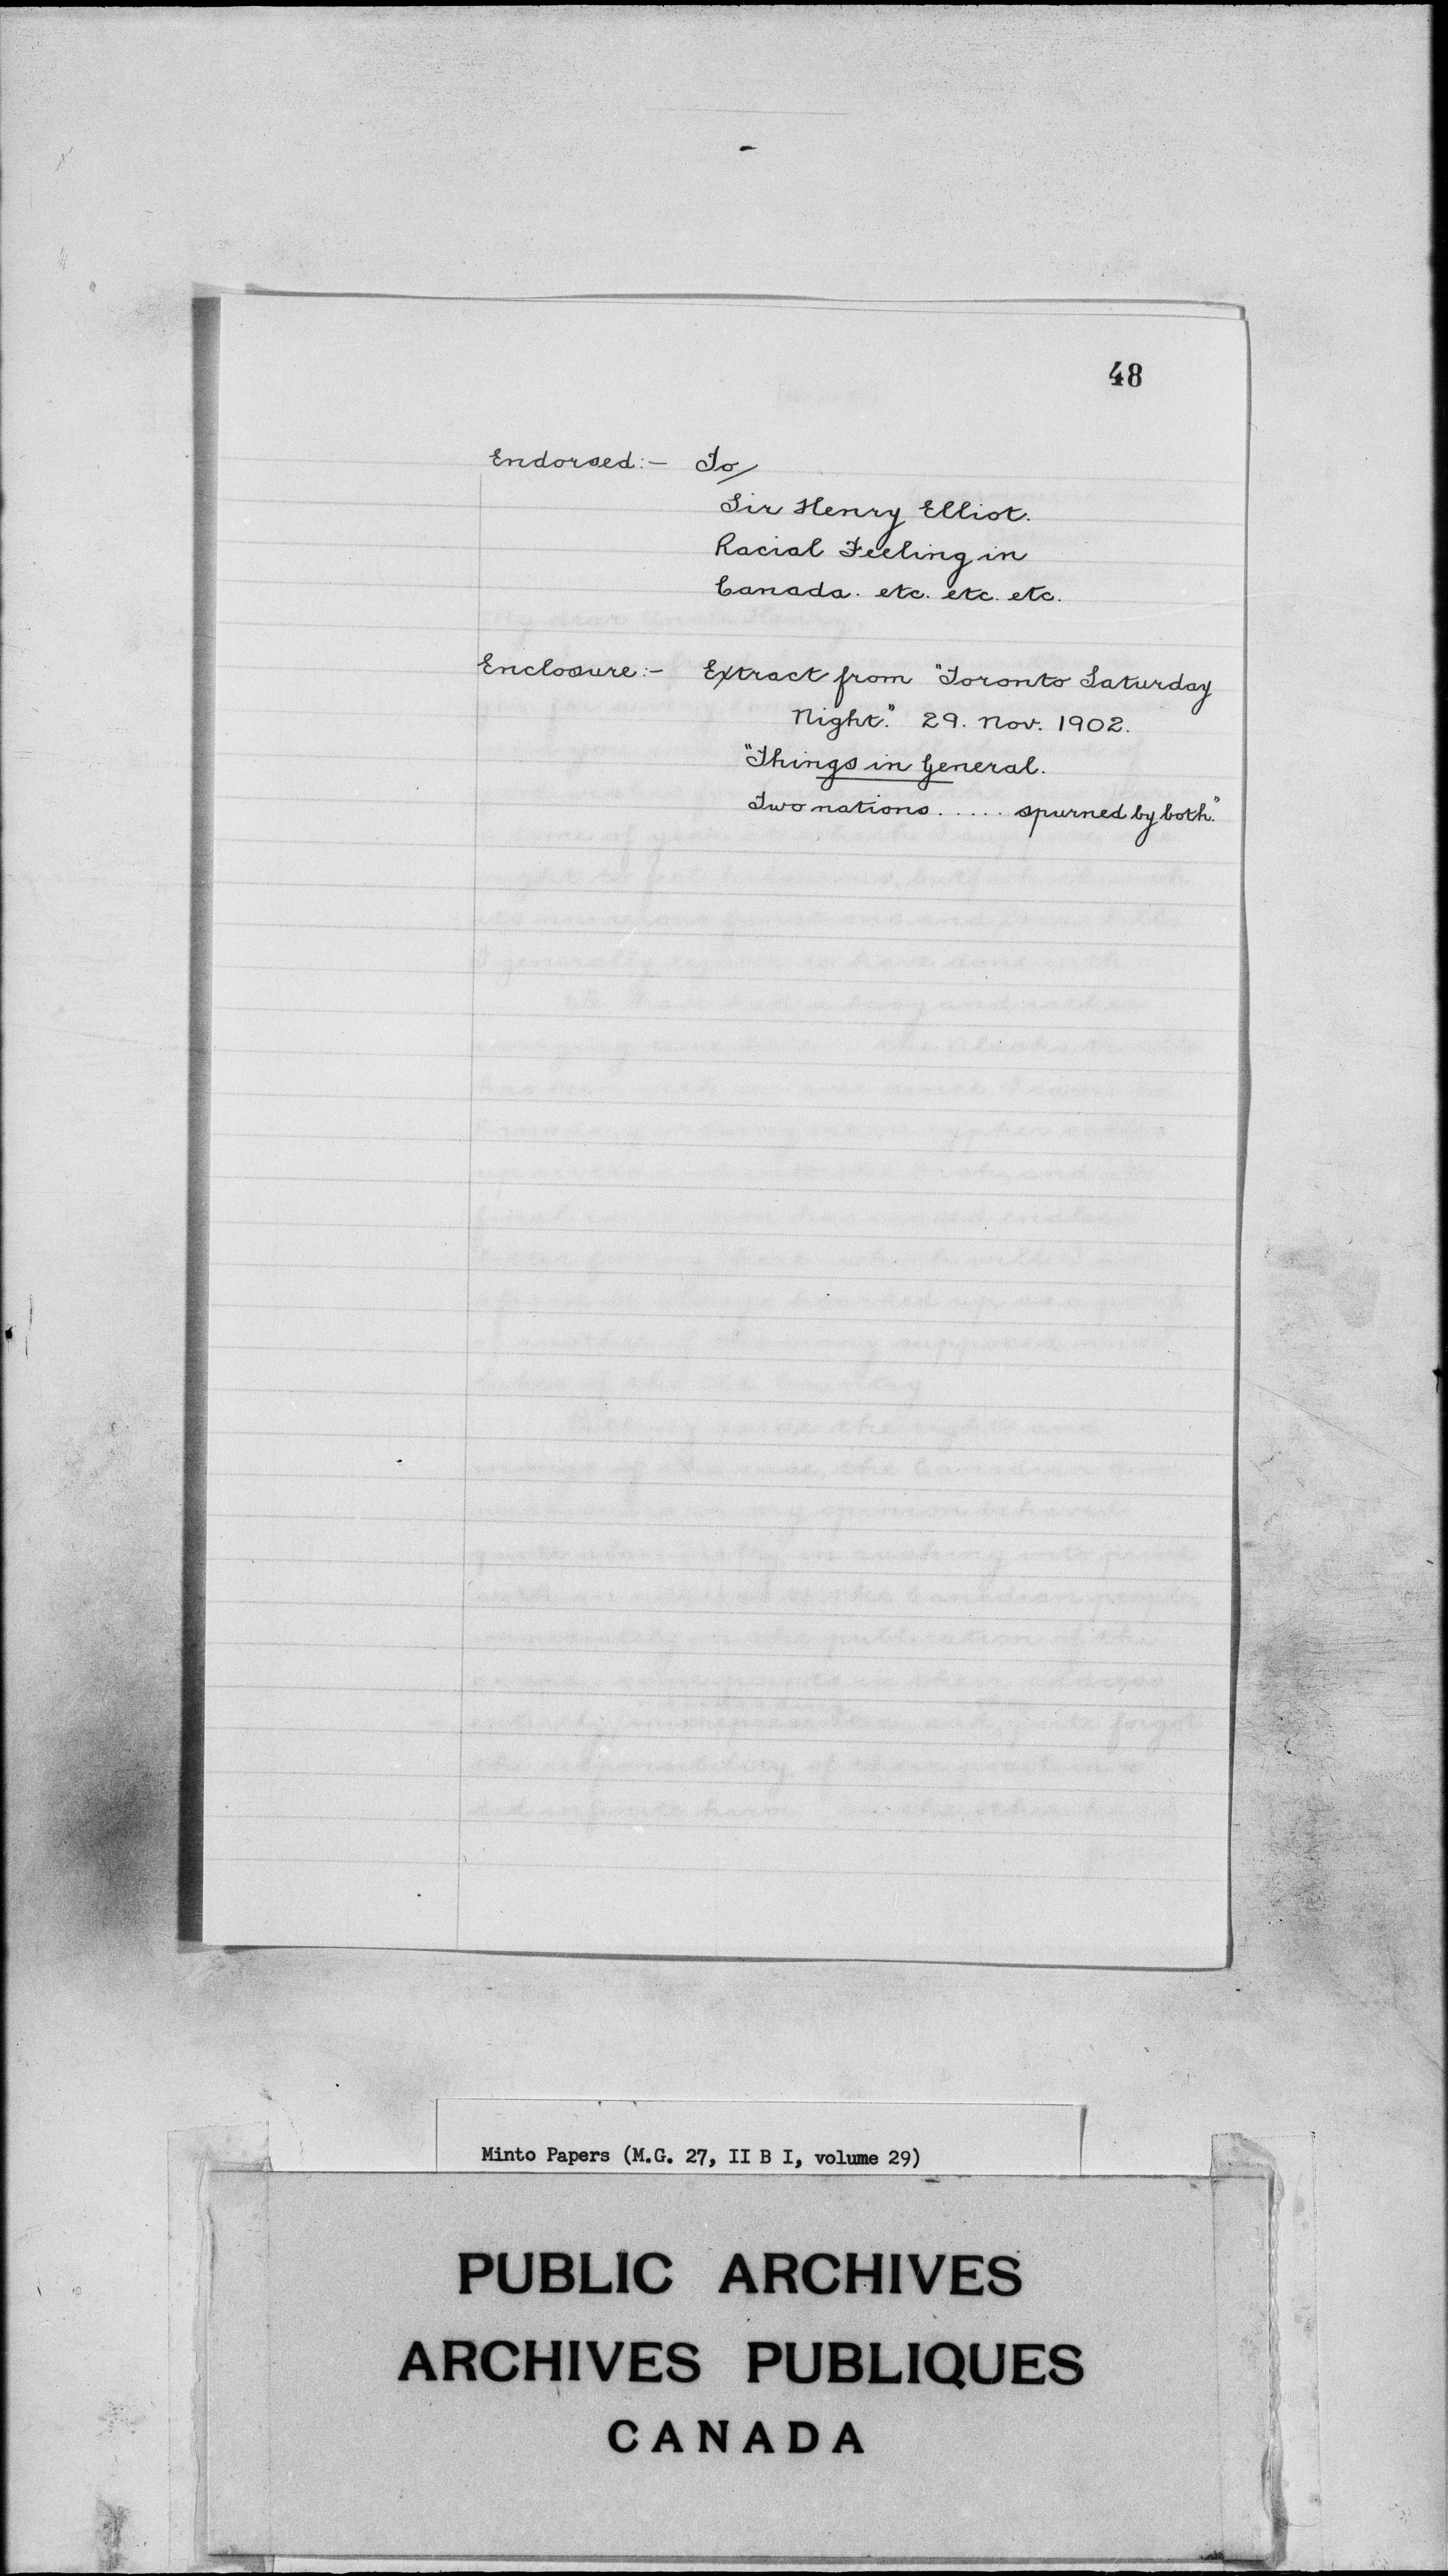 48
Endorsed:- To/
Sir Henry Elliot.
Racial Feeling in
Canada. etc. etc. etc.
Enclosure:- Extract from "Toronto Saturday
Night." 29. Nov. 1902.
"Things in General.
Two nations ..... spurned by both."
Minto Papers (M.G. 27, II B I, volume 29)
PUBLIC ARCHIVES
ARCHIVES PUBLIQUES
CANADA